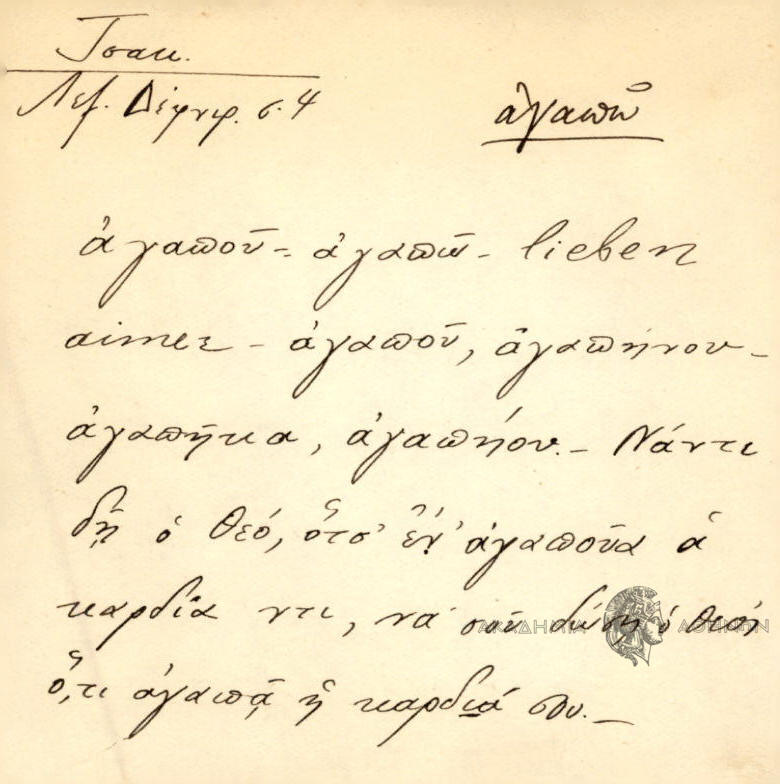 Τσακ.
Λεξ. Δέφνερ. σ. 4
ἀγαπῶ
ἀγαποῦ - ἀγαπῶ - lieben
aimer - ἀγαποῦ, ἀγαπήνου -
ἀγαπῆκα, ἀγαπήου. - Νάντι
δῆ ὁ Θεό, ὅτσ' ἔν' ἀγαποῦα ἁ
καρδία ντι, νά σοῦ δώσῃ ὁ θεός
ὅ,τι ἀγαπᾷ ἡ καρδιά σου. -
ΑΚΑΔΗΜΙΑ ΑΘΗΝΩΝ